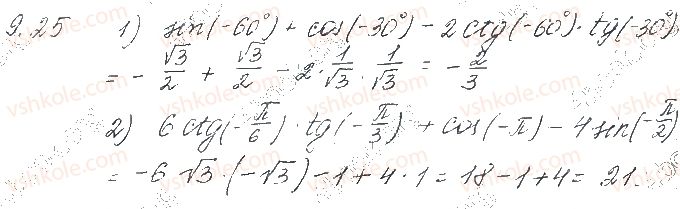 9.25 1) sin(-60°) + cos(-30°) - 2 ctg(-60°) · tg(-30°)
= - √3/2 + √3/2 - 2 · 1/√3 · 1/√3 = - 2/3
2) 6 ctg(-π/6) · tg(-π/3) + cos(-π) - 4 sin(-π/2)
= -6 √3 · (-√3) - 1 + 4 · 1 = 18 - 1 + 4 = 21.